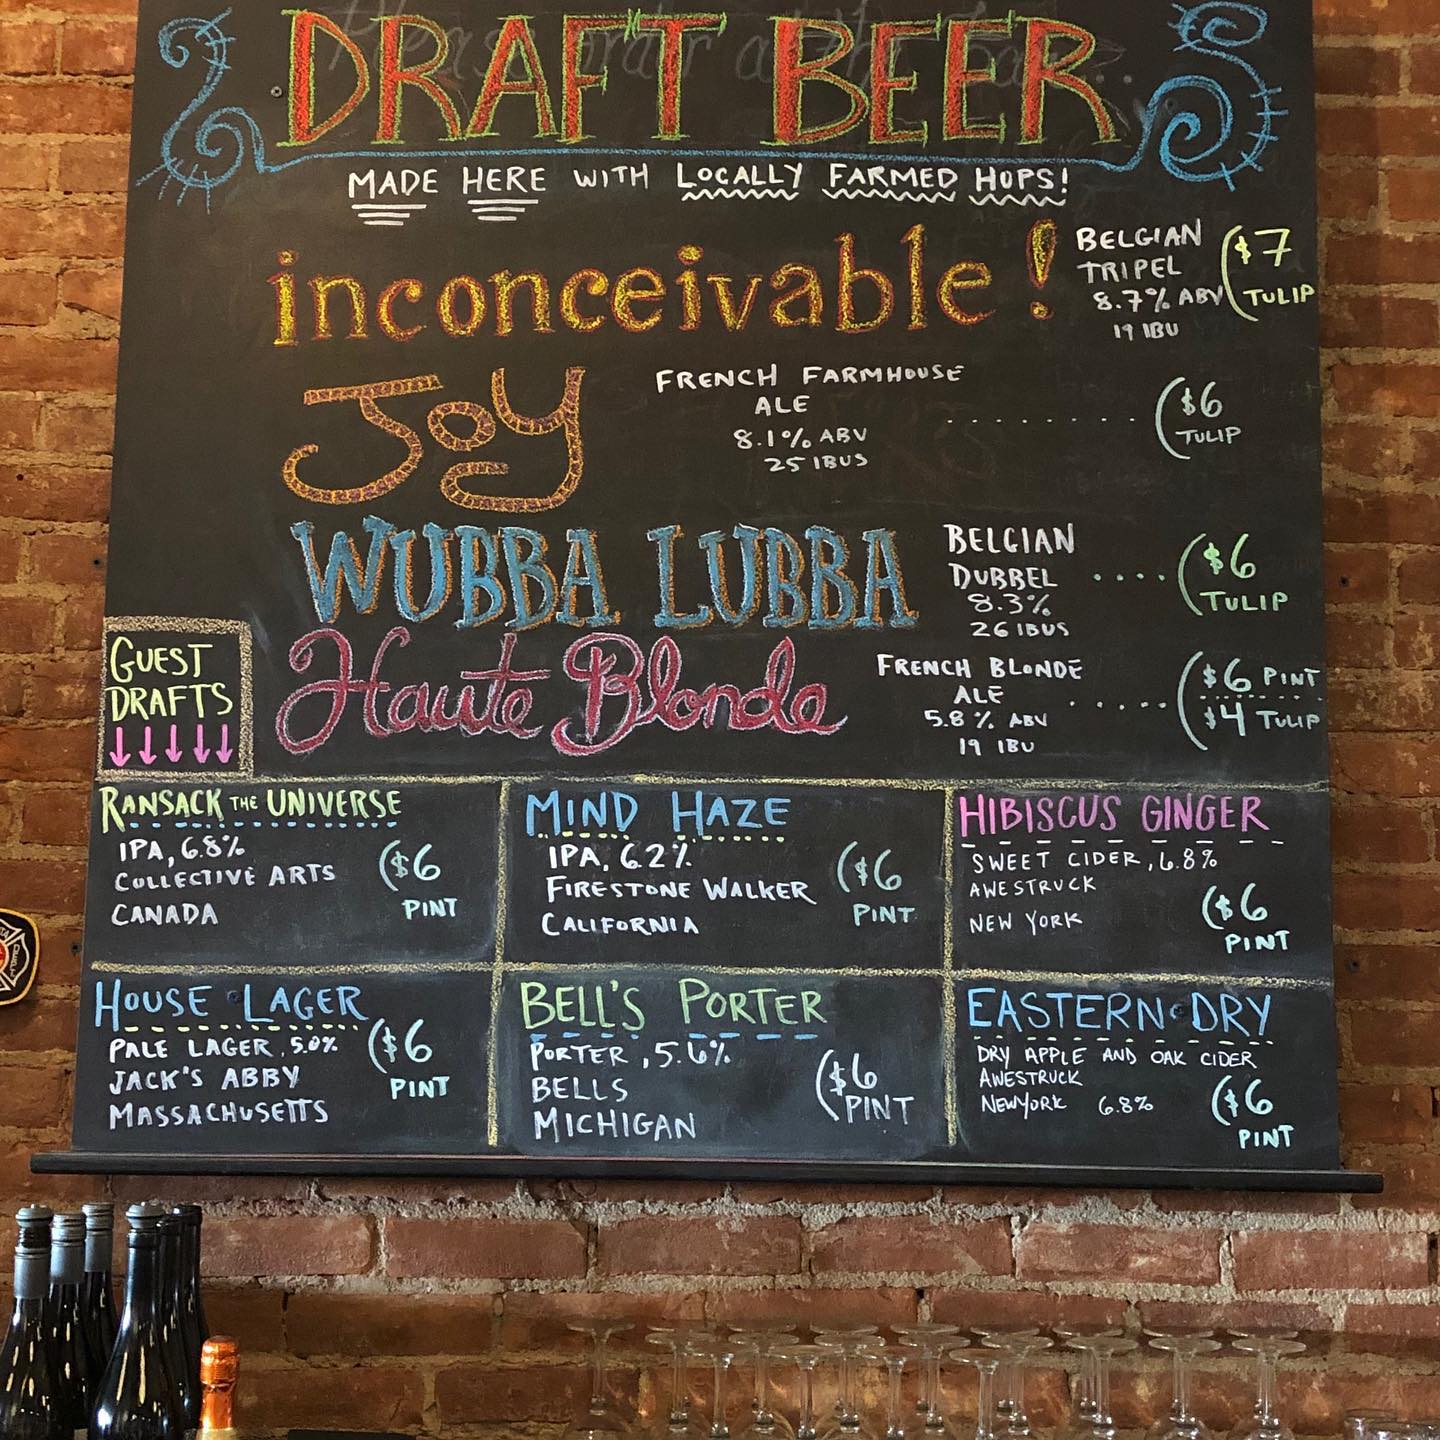 DRAFT BEER
MADE HERE WITH LOCALLY FARMED HOPS!
inconceivable!
BELGIAN
TRIPEL
8.7% ABV
19 IBU
$7
TULIP
JOY
FRENCH FARMHOUSE
ALE
8.1% ABV
25 IBUS
$6
TULIP
WUBBA LUBBA
BELGIAN
DUBBEL
8.3%
26 IBUS
$6
TULIP
Haute Blonde
FRENCH BLONDE
ALE
5.8% ABV
19 IBU
$6 PINT
$4 TULIP
GUEST
DRAFTS
RANSACK THE UNIVERSE
IPA, 6.8%
COLLECTIVE ARTS
CANADA
$6
PINT
MIND HAZE
IPA, 6.2%
FIRESTONE WALKER
CALIFORNIA
$6
PINT
HIBISCUS GINGER
SWEET CIDER, 6.8%
AWESTRUCK
NEW YORK
$6
PINT
HOUSE LAGER
PALE LAGER, 5.0%
JACK'S ABBY
MASSACHUSETTS
$6
PINT
BELL'S PORTER
PORTER, 5.6%
BELLS
MICHIGAN
$6
PINT
EASTERN DRY
DRY APPLE AND OAK CIDER
AWESTRUCK
NEW YORK 6.8%
$6
PINT